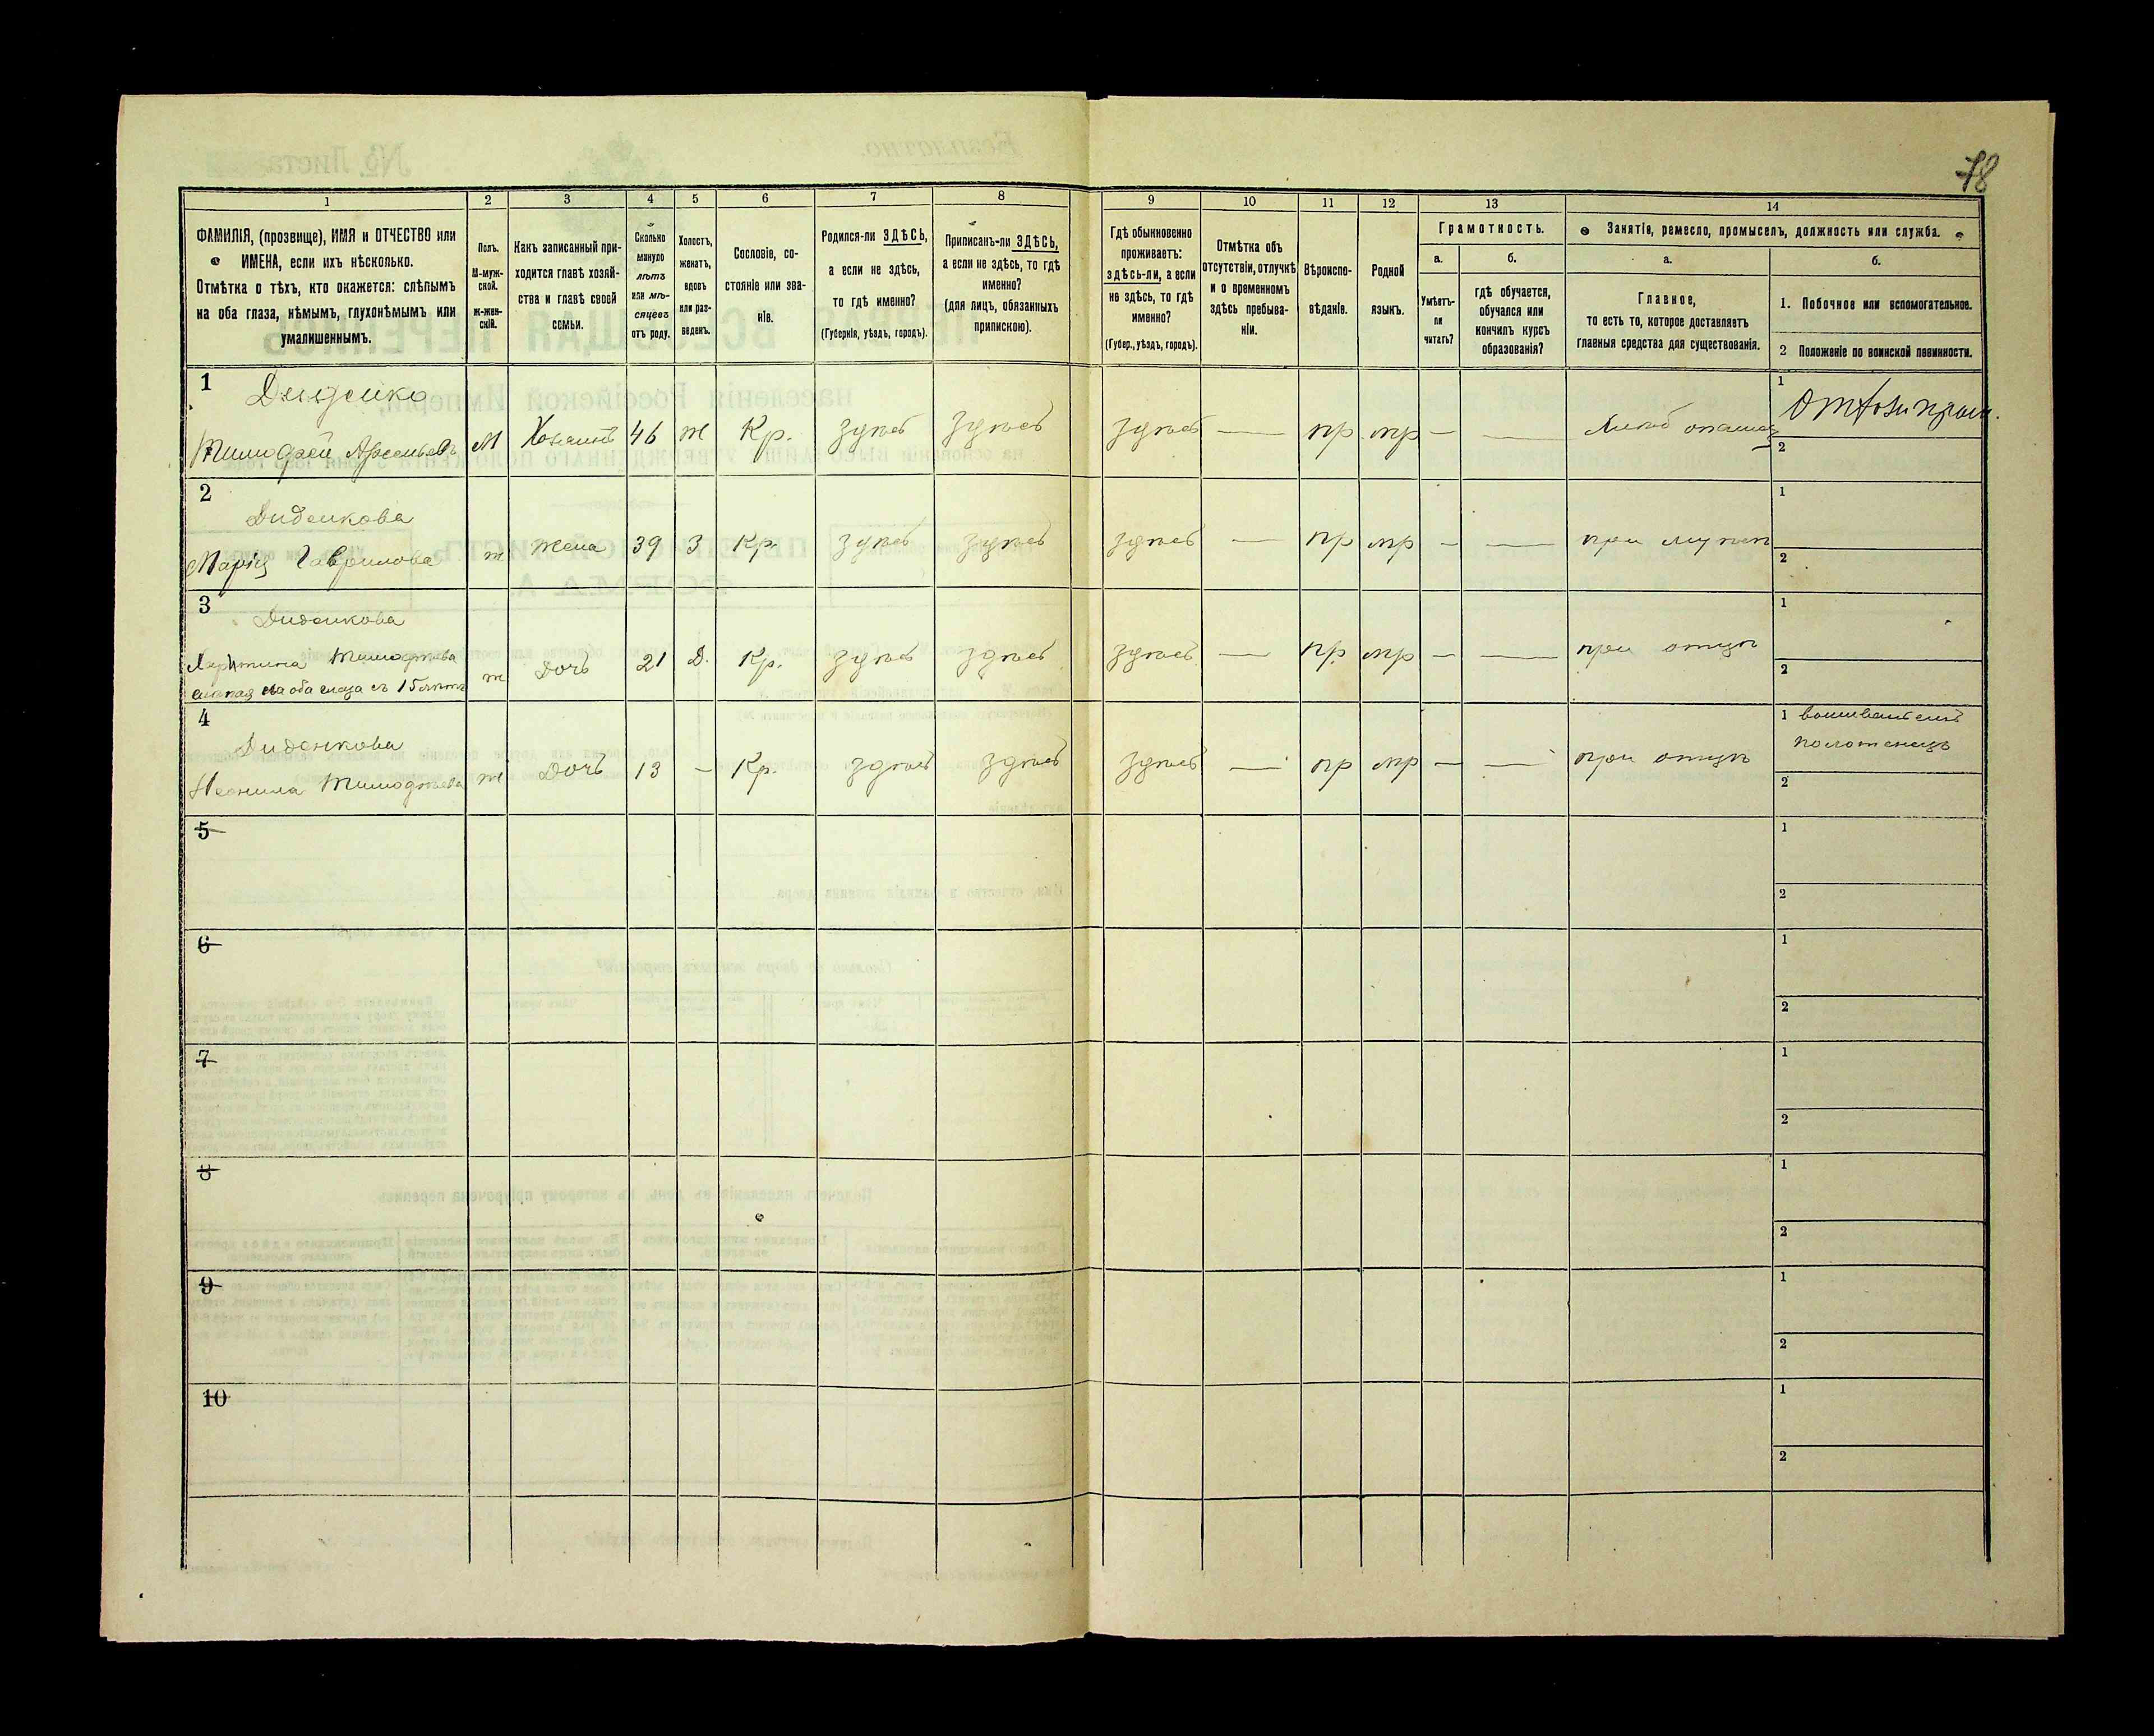 78
1 2 3 4 5 6 7 8 9 10 11 12 13 14
ФАМИЛІЯ, (прозвище), ИМЯ и ОТЧЕСТВО или
ИМЕНА, если ихъ нѣсколько.
Отмѣтка о тѣхъ, кто окажется: слѣпымъ
на оба глаза, нѣмымъ, глухонѣмымъ или
умалишеннымъ.
Полъ.
М-муж-
ской.
ж-жен-
скій.
Какъ записанный при-
ходится главѣ хозяй-
ства и главѣ своей
семьи.
Сколько
минуло
лѣтъ
или мѣ-
сяцевъ
отъ роду.
Холостъ,
женатъ,
вдовъ
или раз-
веденъ.
Сословіе, со-
стояніе или зва-
ніе.
Родился-ли ЗДѢСЬ,
а если не здѣсь,
то гдѣ именно?
(Губернія, уѣздъ, городъ).
Приписанъ-ли ЗДѢСЬ,
а если не здѣсь, то гдѣ
именно?
(для лицъ, обязанныхъ
припискою).
Гдѣ обыкновенно
проживаетъ:
здѣсь-ли, а если
не здѣсь, то гдѣ
именно?
(Губер., уѣздъ, городъ).
Отмѣтка объ
отсутствіи, отлучкѣ
и о временномъ
здѣсь пребыва-
ніи.
Вѣроиспо-
вѣданіе.
Родной
языкъ.
Грамотность.
а.
Умѣетъ-
ли
читать?
б.
гдѣ обучается,
обучался или
кончилъ курсъ
образованія?
Занятіе, ремесло, промыселъ, должность или служба.
а.
Главное,
то есть то, которое доставляетъ
главныя средства для существованія.
б.
1. Побочное или вспомогательное.
2 Положеніе по воинской повинности.
1
Диденко
Тимофей Арсеньевъ М Хозяинъ 46 ж Кр. здѣсь здѣсь здѣсь — пр. мр — —
1
2
2
Диденкова
Марія Гаврилова ж жена 39 З Кр. здѣсь здѣсь здѣсь — пр мр — — при мужѣ
1
2
3
Диденкова
Харитина Тимофѣева
слѣпая на оба глаза съ 15 лѣтъ ж дочь 21 Д. Кр. здѣсь здѣсь здѣсь — пр мр — — при отцѣ
1
2
4
Диденкова
Неонила Тимофѣева ж дочь 13 — Кр. здѣсь здѣсь здѣсь — пр мр — — при отцѣ
1
полотенецъ
2
5
1
2
6
1
2
7
1
2
8
1
2
9
1
2
10
1
2